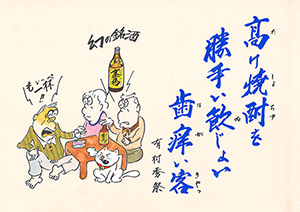 高け焼酎を
勝手い飲じょい
歯痒い客
有村秀祭
幻の銘酒
もう一杯!!